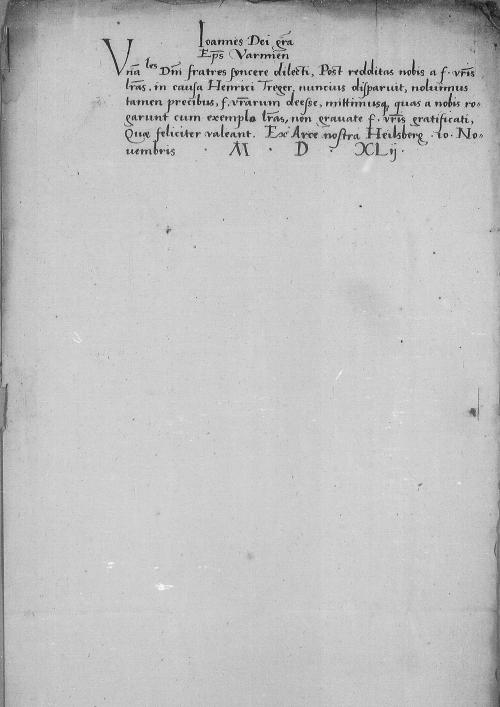 Ioannes Dei gr̃a
Ep̃s Varmien̄
Vn̄a^les Dn̄i fratres syncere dilecti, Post redditas nobis a f. vr̃is
lr̃as, in causa Henrici Treger, nuncius disparuit, noluimus
tamen precibus, f. vr̃arum deesse, mittimusq, quas a nobis ro=
garunt cum exemplo lr̃as, non grauate f. vr̃is gratificati,
Quæ feliciter valeant. Ex Arce nostra Heilsberg .10. No=
uembris . M . D . XLij.